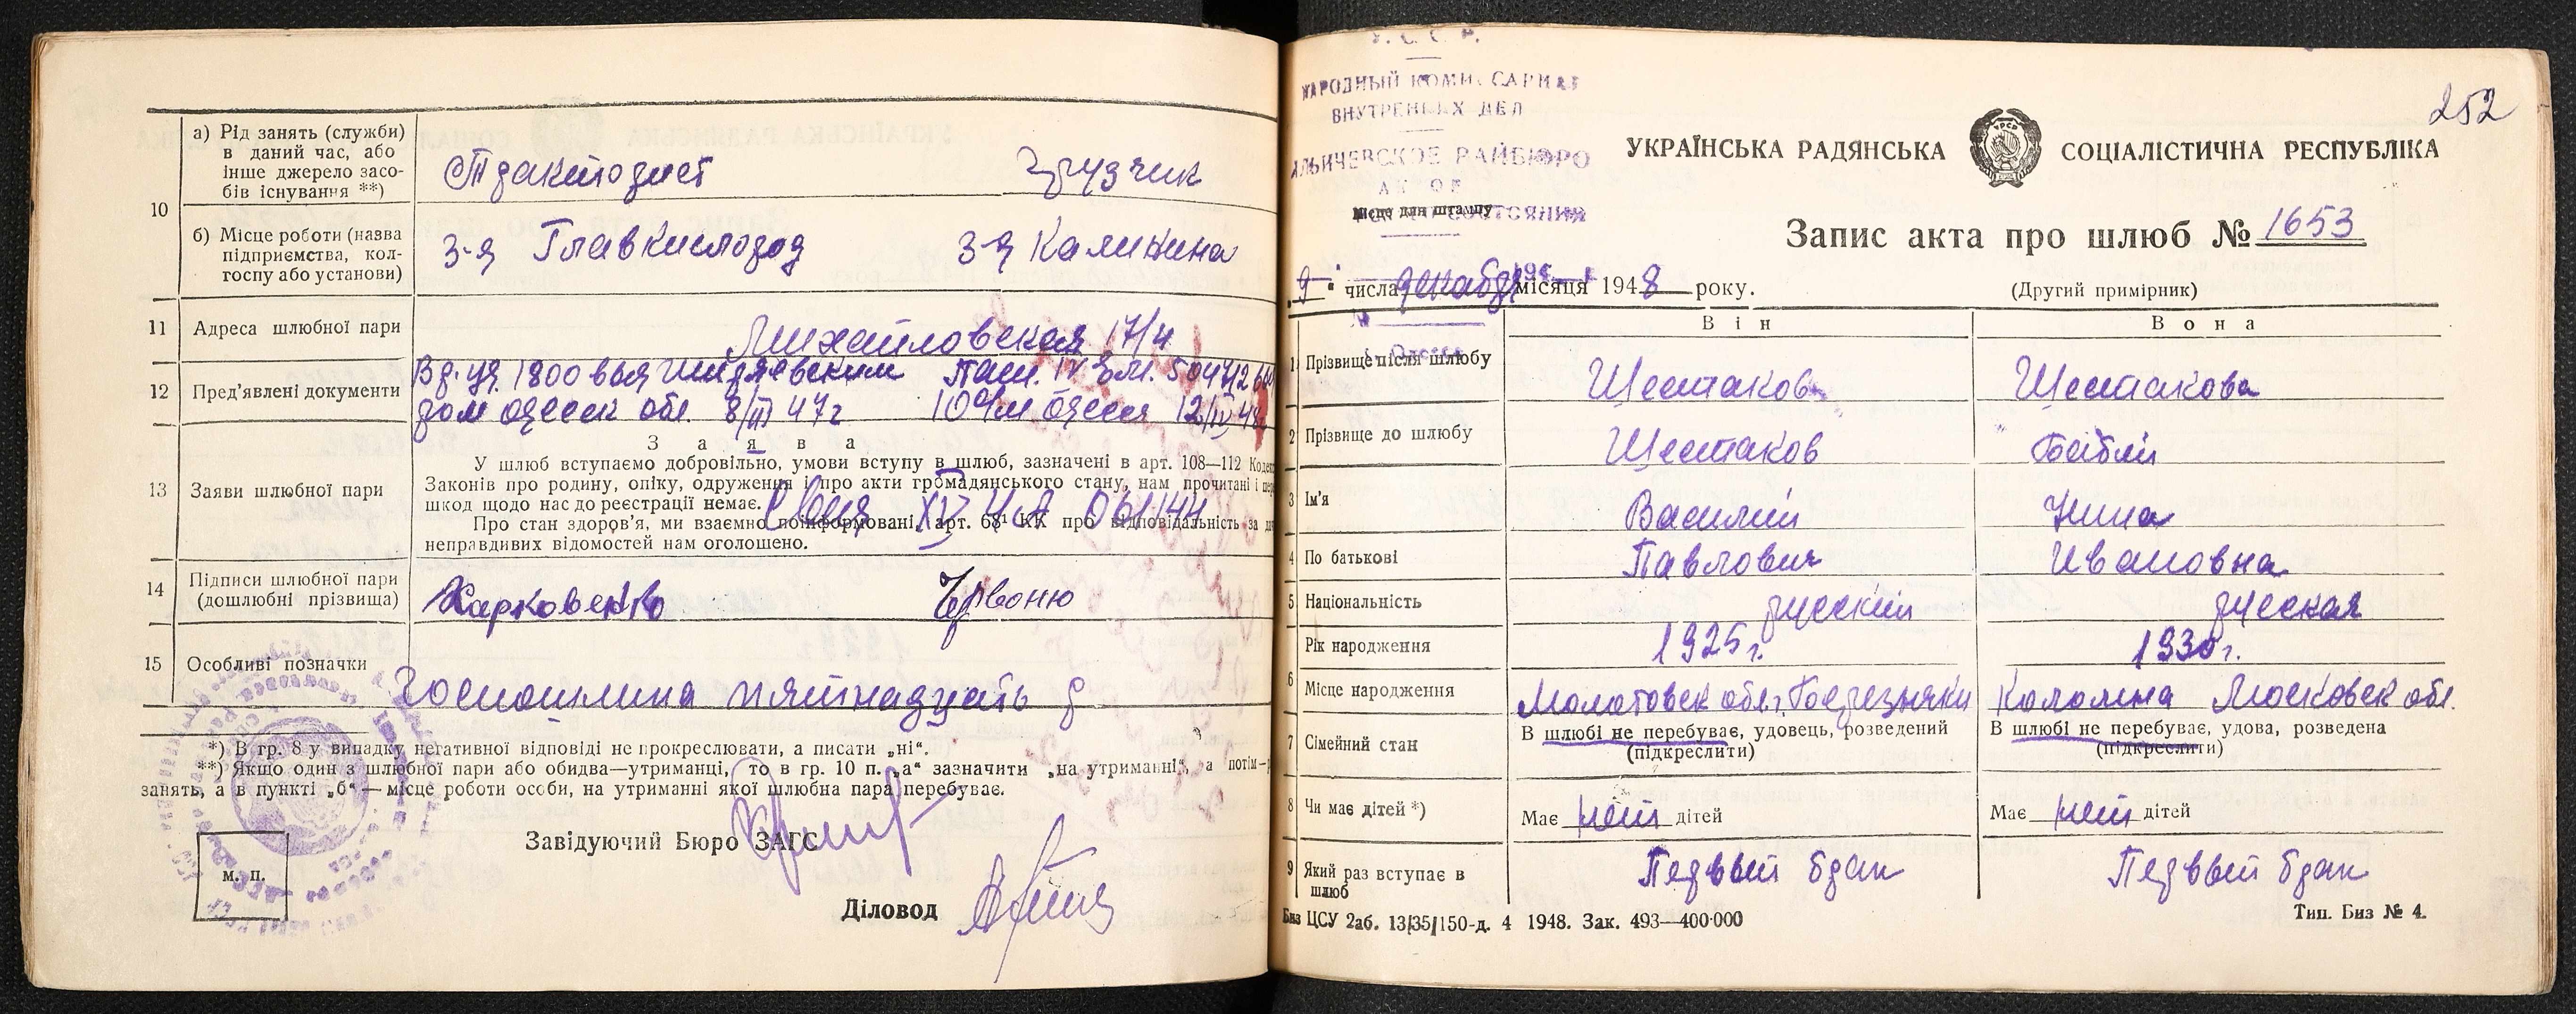 а) Рід занять (служби)
в даний час, або
інше джерело засо-
бів існування **)
10
б) Місце роботи (назва
підприємства, кол-
госпу або установи)
Тракторист
Грузчик
З-д Главкислород
З-д Калинина
11 Адреса шлюбної пари
Михайловская 17/4
12 Пред'явлені документи
1800 выд Ширяевским
ром Одесск обл. 8/III 47г
10 о/м Одесса 12/IV 48
13 Заяви шлюбної пари
З а я в а
У шлюб вступаємо добровільно, умови вступу в шлюб, зазначені в арт. 108—112
Законів про родину, опіку, одруження і про акти громадянського стану, нам прочитані і
шкод щодо нас до реєстрації немає.
Про стан здоров'я, ми взаємно поінформовані, арт. 68¹ КК про відповідальність за
неправдивих відомостей нам оголошено.
061144
14 Підписи шлюбної пари
(дошлюбні прізвища)
Харковенко
15 Особливі позначки
Госпошлина пятнадцать р
*) В гр. 8 у випадку негативної відповіді не прокреслювати, а писати „ні“.
**) Якщо один з шлюбної пари або обидва—утриманці, то в гр. 10 п. „а“ зазначити „на утриманні“, а потім
занять, а в пункті „б“ — місце роботи особи, на утриманні якої шлюбна пара перебуває.
Завідуючий Бюро ЗАГС
м. п.
Діловод
252
У. С. С. Р.
НАРОДНЫЙ КОМИССАРИАТ
ВНУТРЕННИХ ДЕЛ
ИЛЬИЧЕВСКОЕ РАЙБЮРО
АКТОВ
СОСТОЯНИЯ
місце для штампу
г. Одесса
УКРАЇНСЬКА РАДЯНСЬКА СОЦІАЛІСТИЧНА РЕСПУБЛІКА
УРСР
Запис акта про шлюб № 1653
„9“ числа декабря місяця 1948 року.
(Другий примірник)
Він
Вона
1 Прізвище після шлюбу
Шестаков
Шестакова
2 Прізвище до шлюбу
Шестаков
3 Ім'я
Василий
Нина
4 По батькові
Павлович
Ивановна
5 Національність
русский
русская
Рік народження
1925 г.
1930 г.
6 Місце народження
Молотовск обл. г. Березняки
Коломна Московск обл.
7 Сімейний стан
В шлюбі не перебуває, удовець, розведений
(підкреслити)
В шлюбі не перебуває, удова, розведена
(підкреслити)
8 Чи має дітей *)
Має нет дітей
Має нет дітей
9 Який раз вступає в
шлюб
Первый брак
Первый брак
Биз ЦСУ 2аб. 13/35/150-д. 4 1948. Зак. 493—400·000
Тип. Биз № 4.